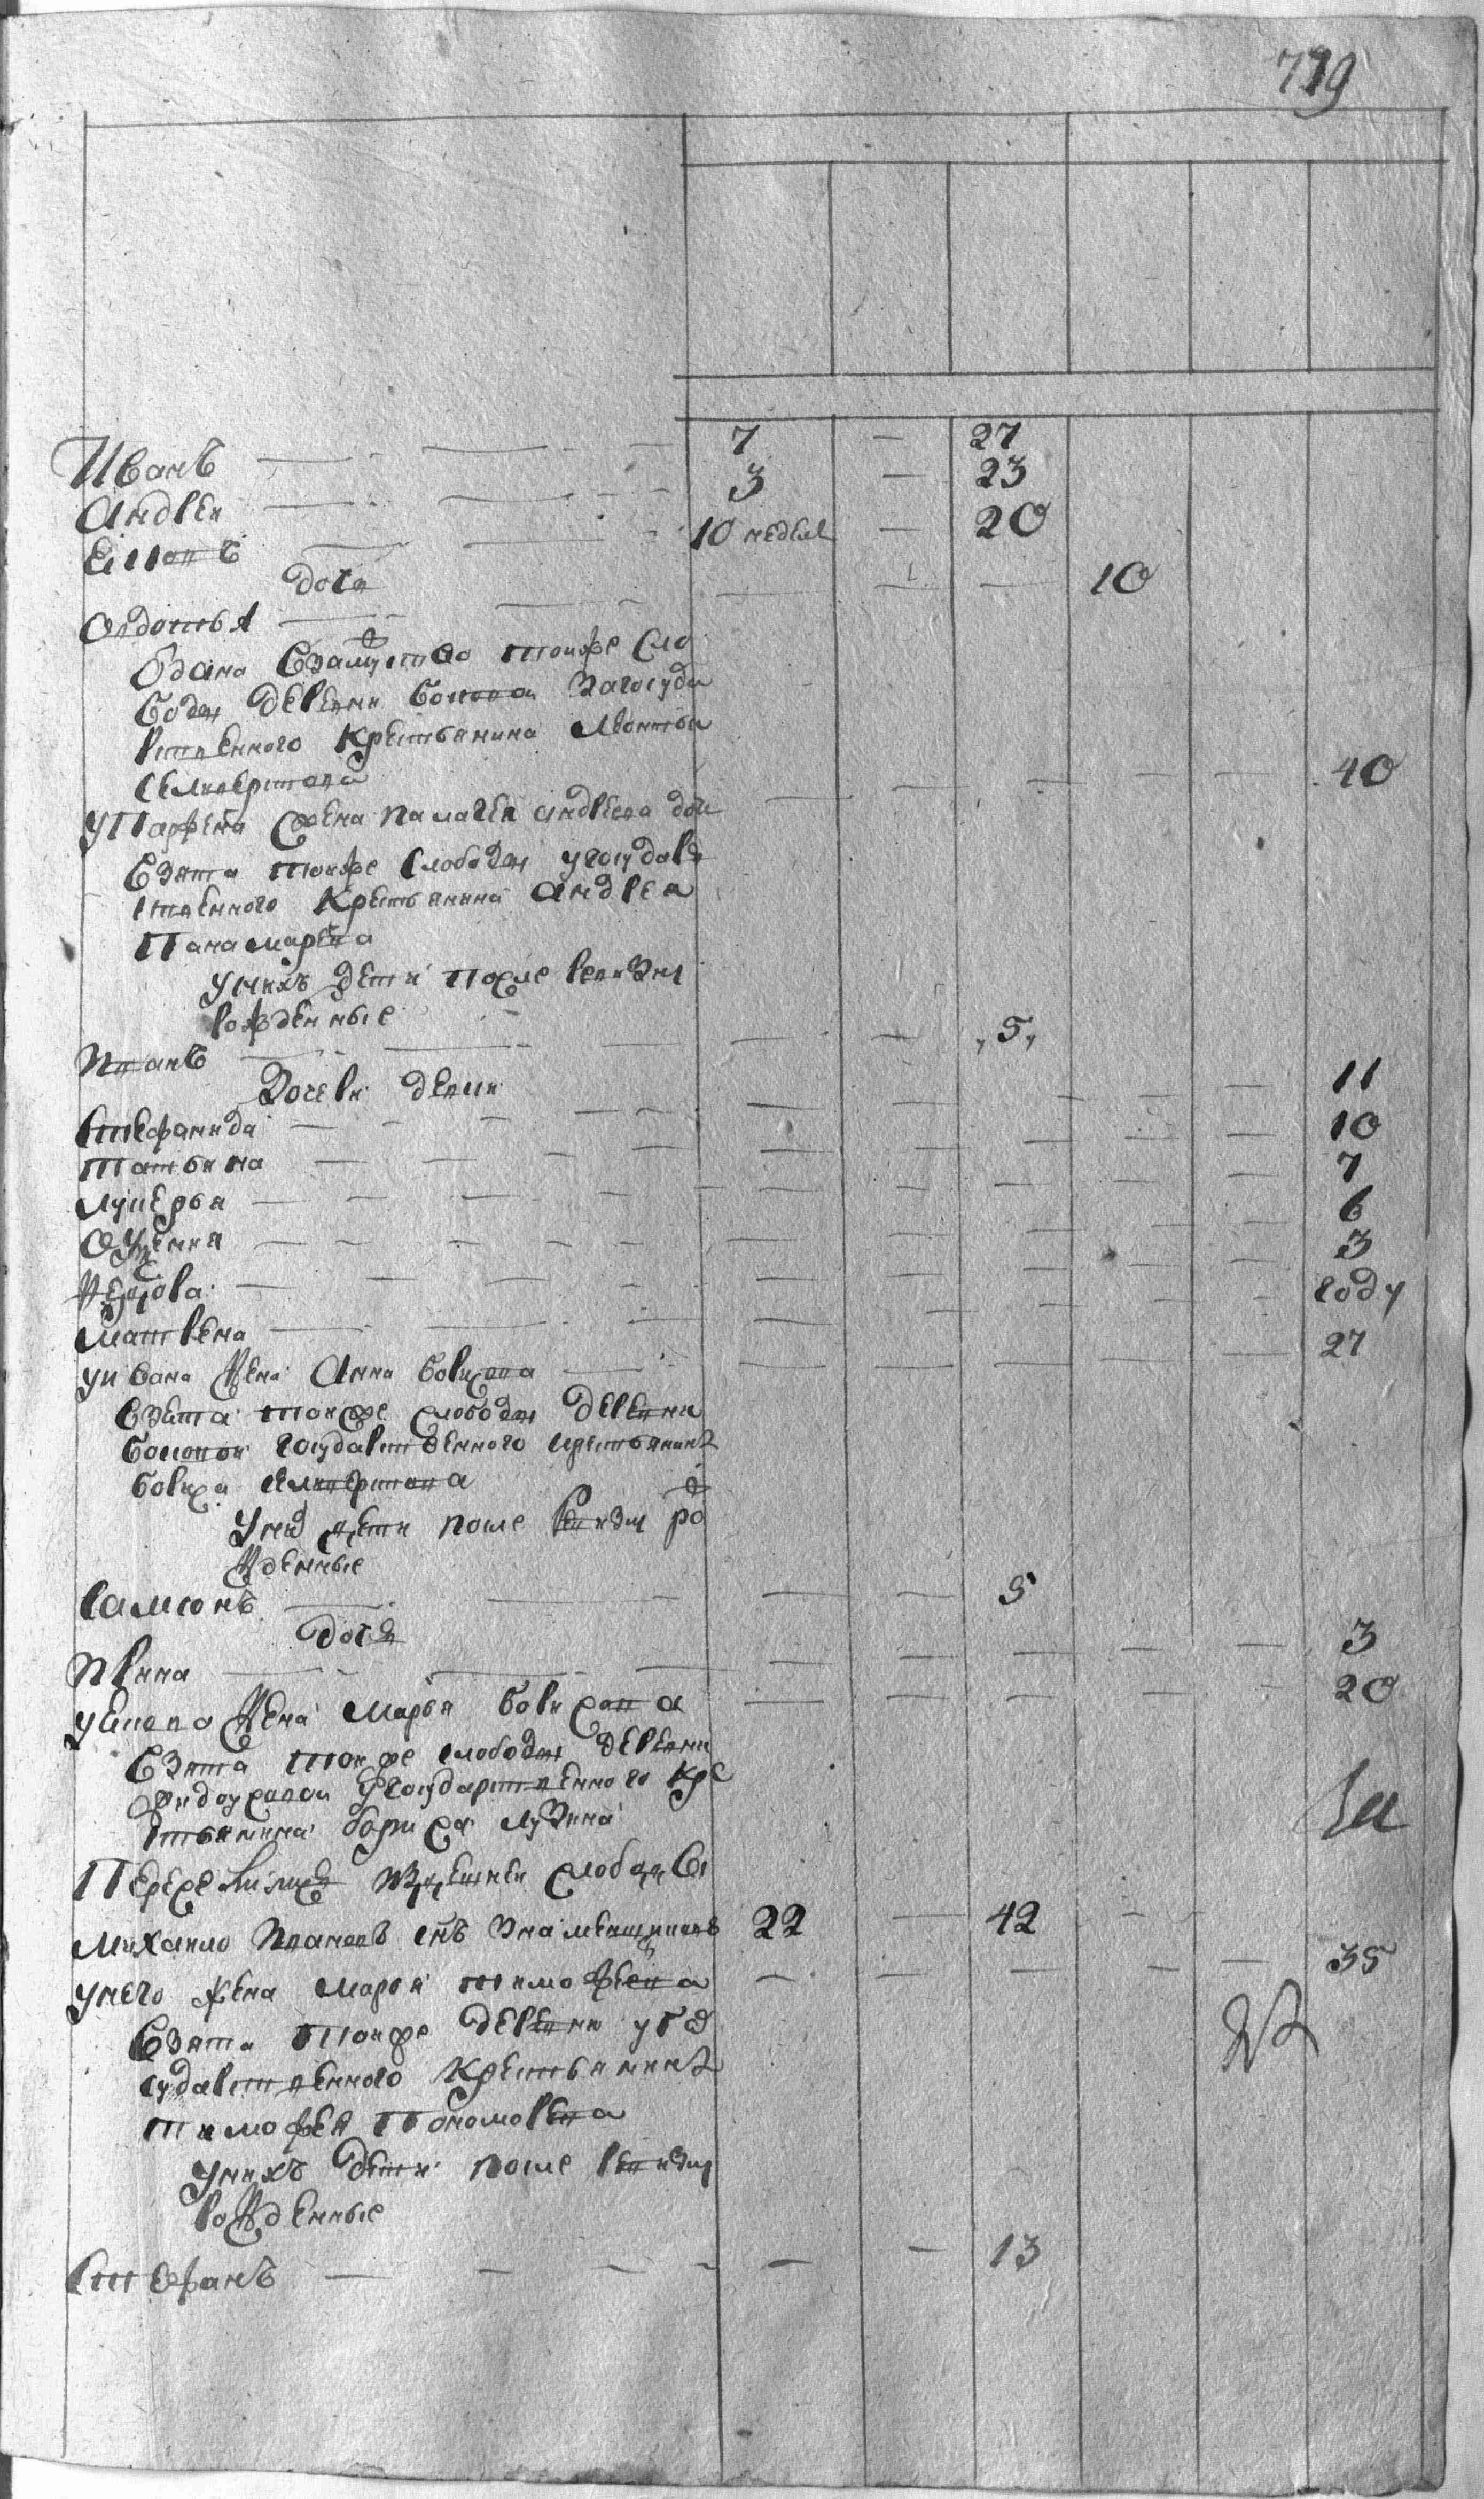 719
Иванъ 7 — 27
Андреи 3 — 23
10 недел — 20
дочь
Овдотья — — 10
здана взамуство тоиже сло
боды деревни за госуда
рственного крестьянина Леонтья
Селивёрстова
У Парфена жена Палагея Андреева доч — 40
взята тоиже слободы у государ
ственного крестьянина Андрея
Панамарева
у них дети после ревизии
рожденные
Иванъ — 5
дочери девки
Стефанида — 11
Татьяна — 10
Лукерья — 7
— 6
— 3
Матрена — году
у Ивана жена Анна Борисова — 27
взята тоиже слободы деревни
государственного крестьянина
Бориса Селиверстова
у них дети после ревизии ро
жденные
Самсонъ — 5
дочь
Ирина — 3
жена Марья Борисова — 20
взята тоиже слободы деревни
у государственного кре
стьянина Бориса Лузина
слободы
Михаило Ивановъ снъ Знаменщиковъ 22 — 42
у него жена Марья Тимофеева — 35
взята тоиже деревни у го
сударственного крестьянина
Тимофея Пономорева
у нихъ дети после ревизии
рожденные
Стефанъ — 13